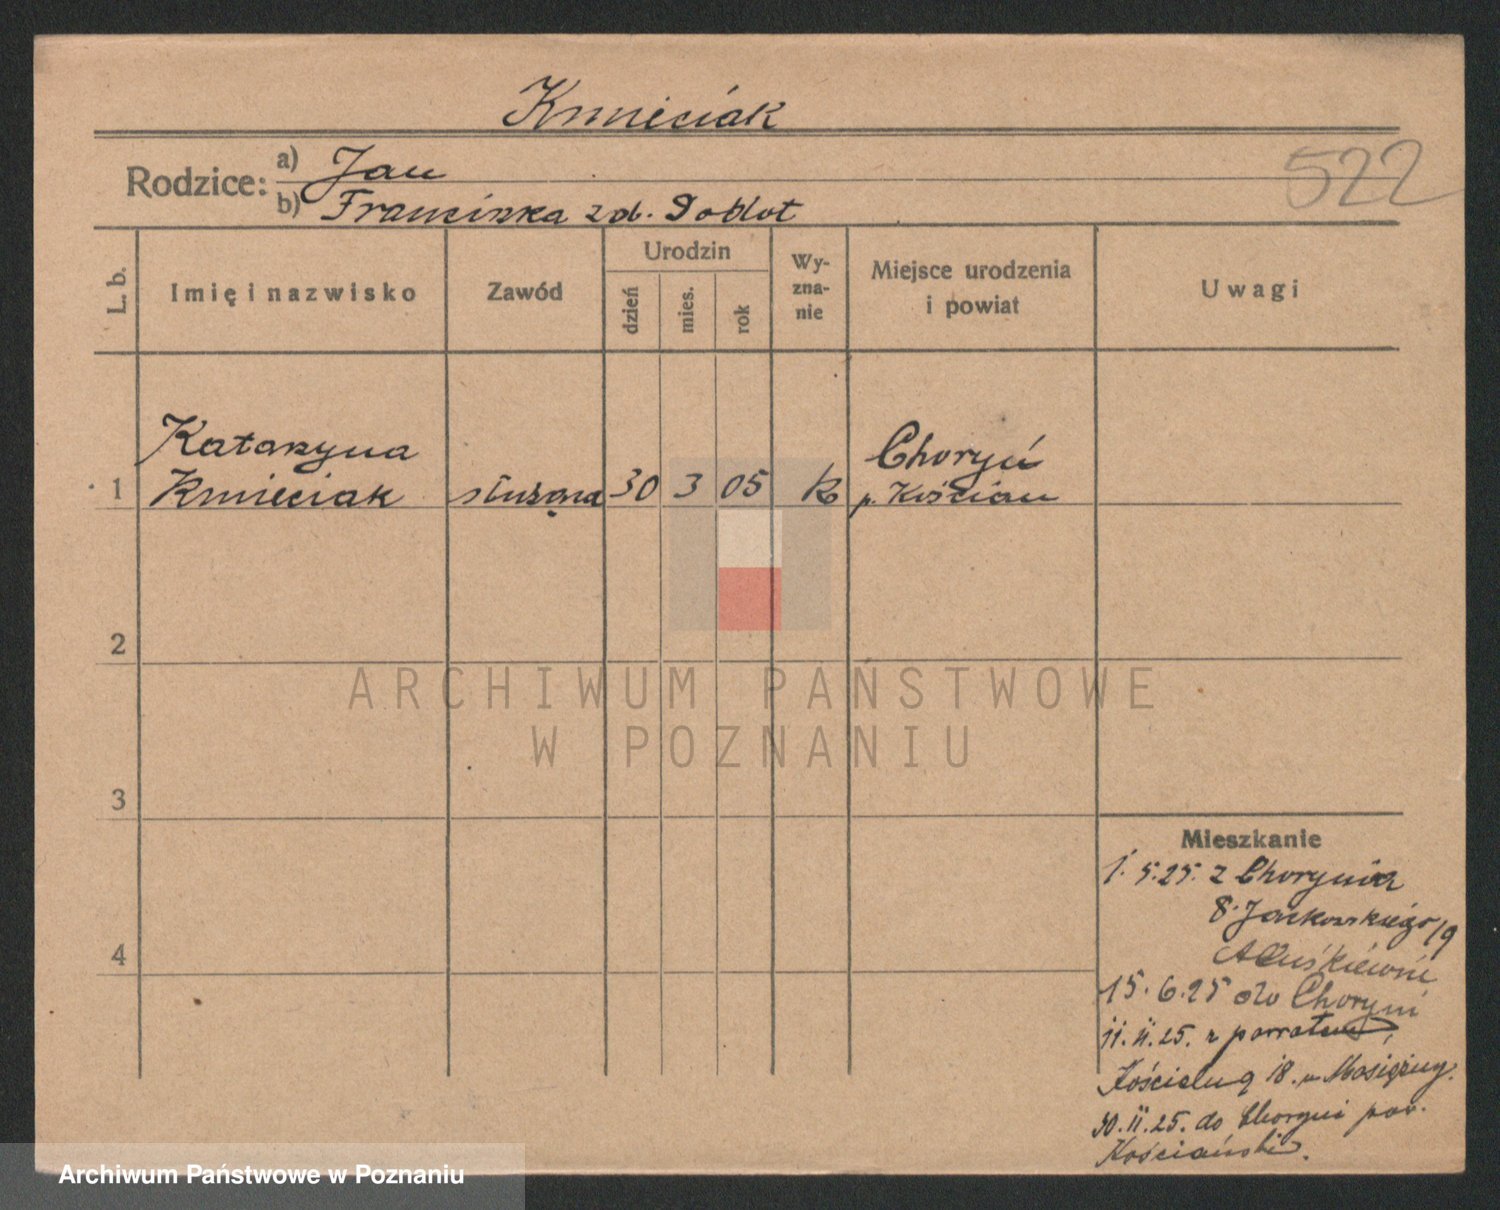 Kmieciak
522
Rodzice: a) Jan
b) Franciszka zd.
L. b.
Imię i nazwisko
Zawód
Urodzin
dzień
mies.
rok
Wy-
zna-
nie
Miejsce urodzenia
i powiat
Uwagi
Katarzyna
1 Kmieciak
służąca
30 3 05 k
Choryń
p. Kościan
2
ARCHIWUM PAŃSTWOWE
W POZNANIU
3
4
Mieszkanie
1. 5.25. z Chorynia
8. Jackowskiego 19
15. 6.25 do Choryni
11. 11. 25. z powrotem
Kościelną 18. u
30. 11. 25. do Choryni pow.
Kościański.
Archiwum Państwowe w Poznaniu